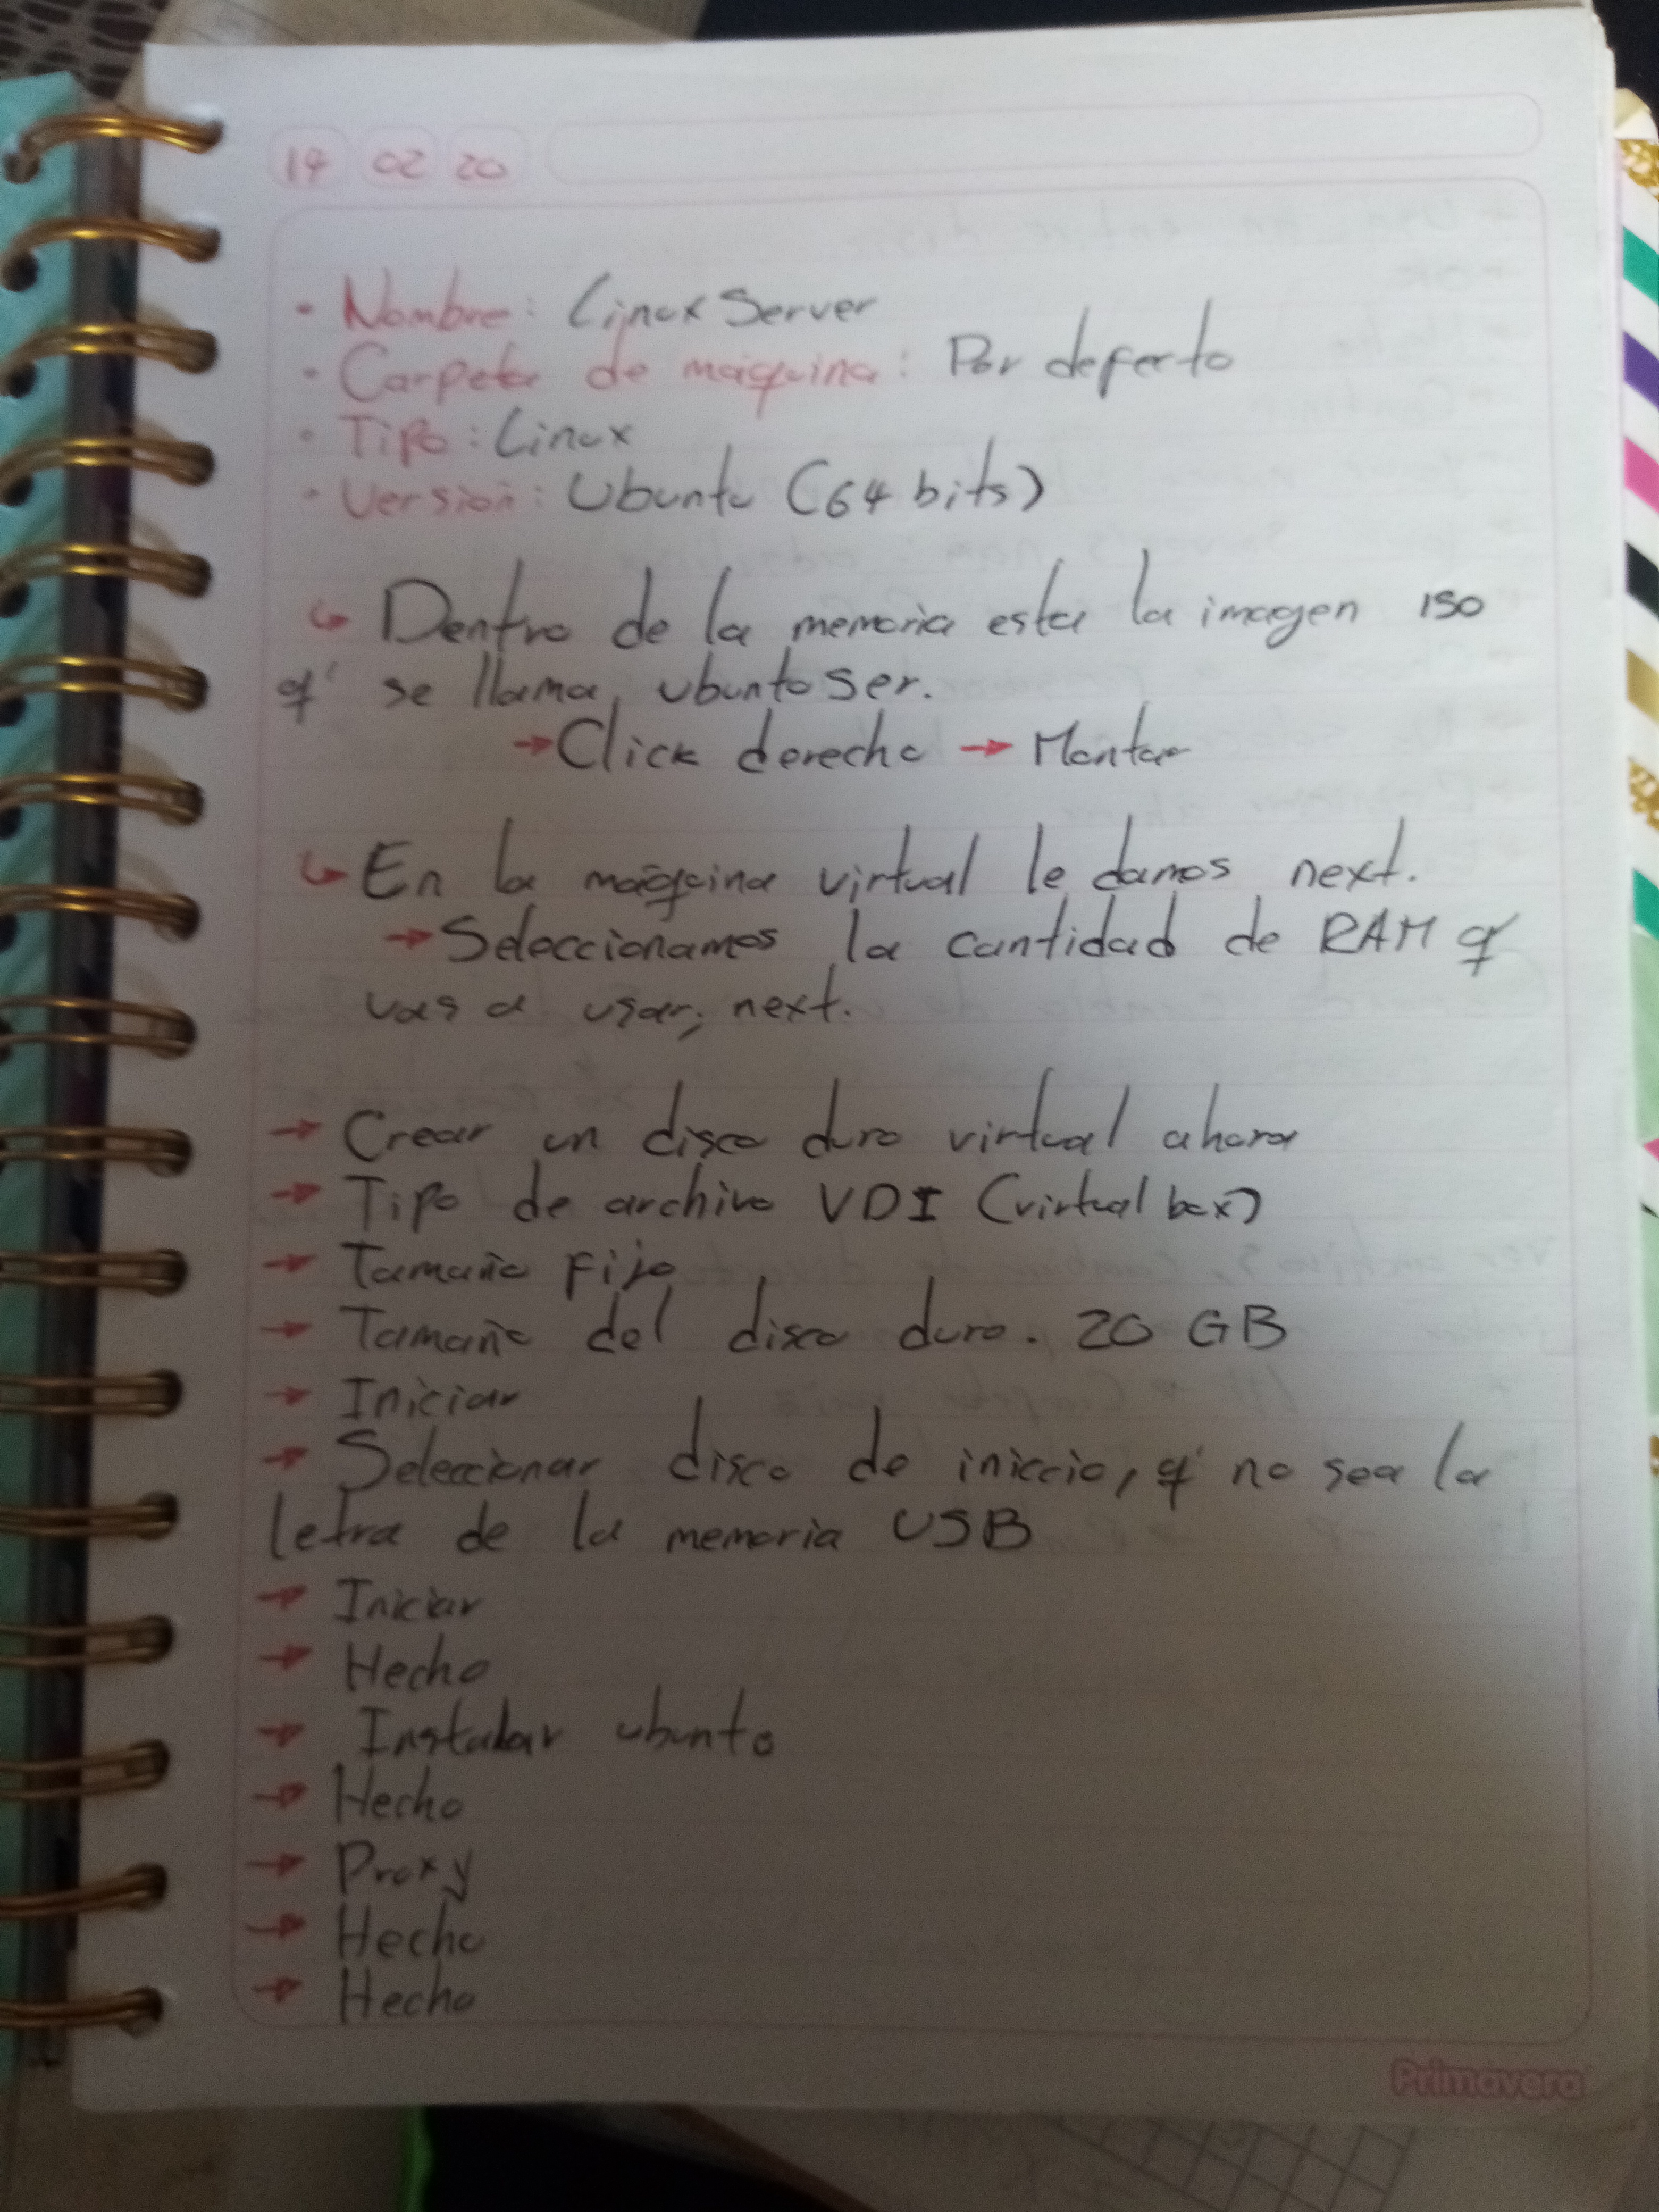 14 02 20
• Nombre: Linux Server
• Carpeta de máquina: Por defecto
• Tipo: Linux
• Versión: Ubuntu (64 bits)
↳ Dentro de la memoria esta la imagen ISO
q' se llama ubuntoser.
→ Click derecho → Montar
↳ En la máquina virtual le damos next.
→ Seleccionamos la cantidad de RAM q'
vas a usar; next.
→ Crear un disco duro virtual ahora
→ Tipo de archivo VDI (virtual box)
→ Tamaño Fijo
→ Tamaño del disco duro. 20 GB
→ Iniciar
→ Seleccionar disco de iniccio, q' no sea la
letra de la memoria USB
→ Iniciar
→ Hecho
→ Instalar ubunto
→ Hecho
→ Proxy
→ Hecho
→ Hecho
Primavera